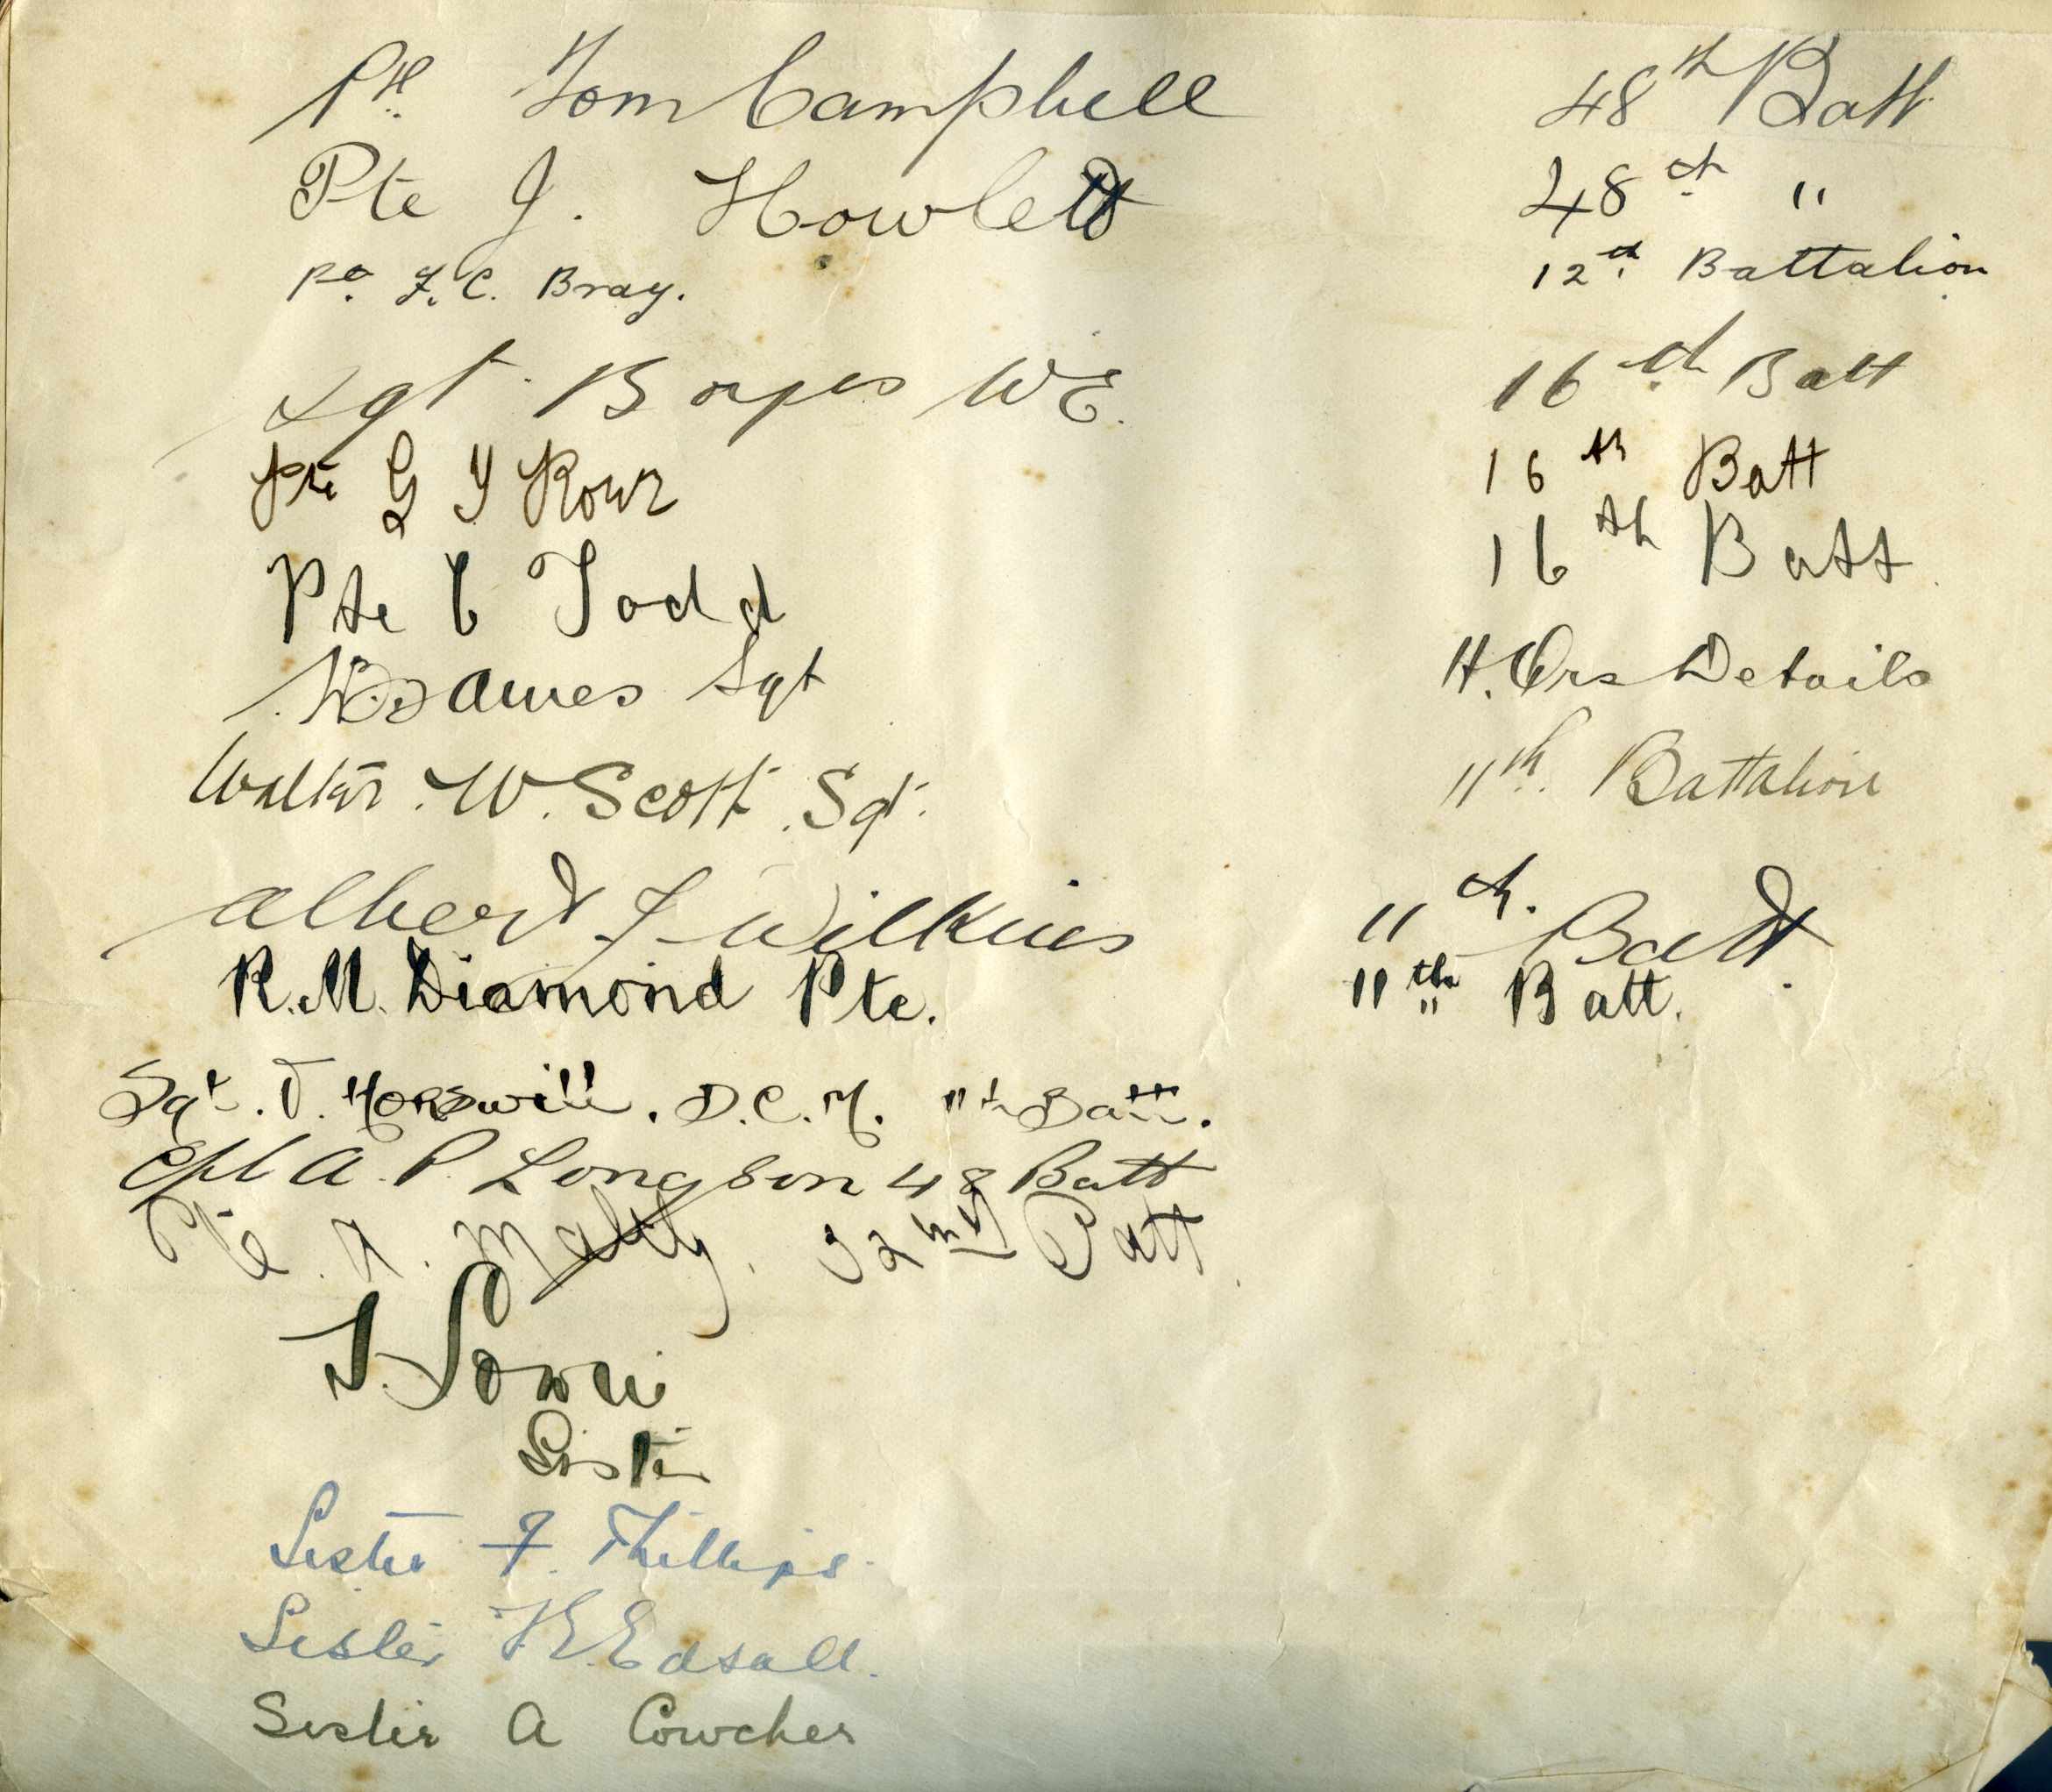 Pte Tom Campbell 48th Batt.
Pte J. Howlett 48th "
Pte. F. C. Bray. 12th Battalion
Sgt. Bayes W E. 16th Batt
Pte G Y Rowe 16th Batt
Pte C Todd 16th Batt
Dawes Sgt H. Qrs Details
Walter. W. Scott. Sgt. 11th. Battalion
Albert J Wilkins 11th. Batt.
R. M. Diamond Pte. 11th Batt.
Sgt. J. Horswill. D.C.M. 11th Batt.
Cpl A. P. Longson 48 Batt
Pte. A. Maltby. 32nd Batt.
Sister
Sister F. Phillips.
Sister Edsall.
Sister A Cowcher